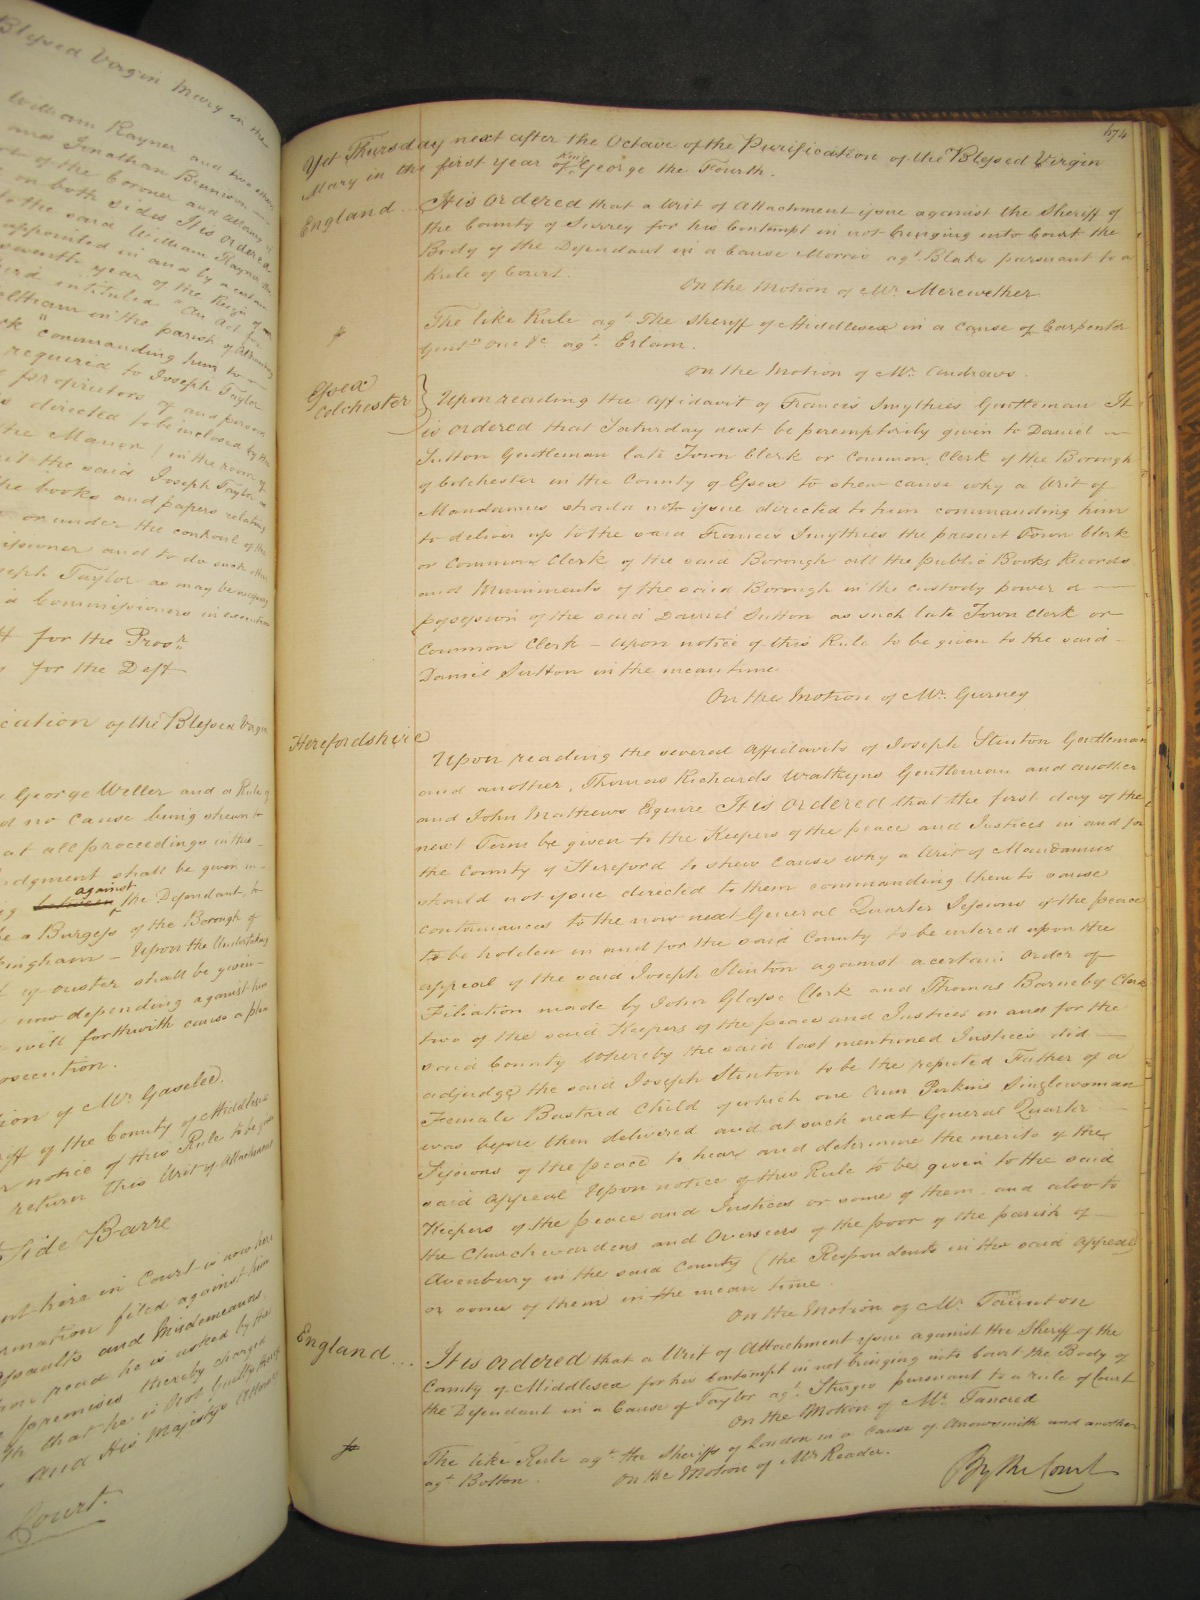 Blessed Virgin Mary in the
William Rayner and two others
and Jonathan Binnison
of the Coroner and Attorney
on both sides It is ordered
to the said William Rayner
appointed in and by a certain
seventh year of the Reign of
intituled "An Act for
in the parish of
" commanding him to
required to Joseph Taylor
proprietors of and persons
directed to be inclosed by the
the Manor / in the room of
the said Joseph Taylor
the books and papers relating
or under the controul of the
and to do such other
Joseph Taylor as may be necessary
Commissioners in execution
for the Prosr
for the Deft
of the Blessed Virgin
George Weller and a Rule
no cause being shewn to
at all proceedings in this
Judgment shall be given in
against
between the Defendant, to
be a Burgess of the Borough of
Upon the Undertaking
of ouster shall be given
now depending against him
will forthwith cause a plea
prosecution.
of Mr. Gaselee.
of the County of Middlesex
notice of this Rule to be given
return this Writ of Attachment
Side Barre
here in Court is now here
filed against him
Assaults and Misdemeanors
read he is asked by the
premises thereby charged
that he is Not Guilty thereof
and His Majestys Attorney
Court.
674
Yet Thursday next after the Octave of the Purification of the Blessed Virgin
Mary in the first year of King George the Fourth.
England... It is ordered that a Writ of Attachment issue against the Sheriff of
the County of Surrey for his Contempt in not bringing into Court the
Body of the Defendant in a Cause Morris agt. Blake pursuant to a
Rule of Court.
On the Motion of Mr. Merewether.
The like Rule agt. The Sheriff of Middlesex in a cause of Carpenter
Gentn. One &c agt. Erlam.
On the Motion of Mr. Andrews.
Essex
Colchester } Upon reading the Affidavit of Francis Smythies Gentleman It
is ordered that Saturday next be peremptorily given to Daniel
Sutton Gentleman late Town Clerk or Common Clerk of the Borough
of Colchester in the County of Essex to shew cause why a Writ of
Mandamus should not issue directed to him commanding him
to deliver up to the said Francis Smythies the present Town Clerk
or Common Clerk of the said Borough all the public Books Records
and Muniments of the said Borough in the custody power or
possession of the said Daniel Sutton as such late Town Clerk or
Common Clerk – upon notice of this Rule to be given to the said
Daniel Sutton in the mean time.
On the Motion of Mr. Gurney
Herefordshire
Upon reading the several Affidavits of Joseph Stinton Gentleman
and another, Thomas Richards Watkyns Gentleman and another
and John Mathews Esquire It is ordered that the first day of the
next Term be given to the Keepers of the peace and Justices in and for
the County of Hereford to shew cause why a Writ of Mandamus
should not issue directed to them commanding them to cause
continuances to the now next General Quarter Sessions of the peace
to be holden in and for the said County to be entered upon the
appeal of the said Joseph Stinton against a certain order of
Filiation made by John Glasse Clerk and Thomas Barneby Clerk
two of the said Keepers of the peace and Justices in and for the
said County Whereby the said last mentioned Justices did
adjudge the said Joseph Stinton to be the reputed Father of a
Female Bastard Child of which one Ann Perkins Singlewoman
was before then delivered and at such next General Quarter
Sessions of the peace to hear and determine the merits of the
said Appeal Upon notice of this Rule to be given to the said
Keepers of the peace and Justices or some of them and also to
the Churchwardens and Overseers of the poor of the parish of
Avenbury in the said County (the Respondents in the said Appeal)
or some of them in the mean time.
On the Motion of Mr. Taunton
England... It is ordered that a Writ of Attachment issue against the Sheriff of the
County of Middlesex for his Contempt in not bringing into Court the Body of
the Defendant in a Cause of Taylor agt. Sturgis pursuant to a rule of Court
On the Motion of Mr. Tancred
The like Rule agt. the Sheriffs of London in a Cause of Arrowsmith and another
agt. Bolton. On the Motion of Mr. Reader.
By the Court